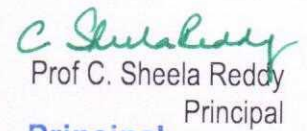 C. Sheela Reddy
Prof C. Sheela Reddy
Principal
Principal